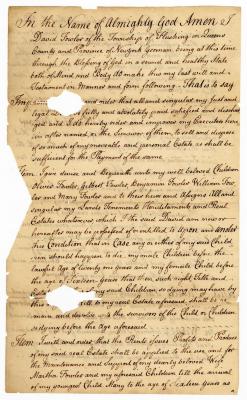 In the Name of Almighty God Amen I
David Fowler of the Township of Flushing in Queens
County and Province of New York Yeoman being at this time
through the Blessing of God in a sound and healthy State
both of Mind and Body do make this my last will and
Testament in Manner and form following. That is to say
Imp and order that all and singular my just and
legal D fully and absolutely paid satisfied and discharged
and I do hereby order and impower my Executors here
in after named, or the Survivor of them, to sell and dispose
of so much of my moveable and personal Estate as shall be
sufficient for the Payment of the same
Item I give devise and Bequeath unto my well beloved Children
Oliver Fowler Gilbert Fowler Benjamin Fowler William Fow
ler and Mary Fowler and to their heirs and Assigns All and
singular my Lands Tenements Hereditaments and Real
Estate whatsoever, which I the said David am now or
hereafter may be possessed of or entitled to Upon and under
this Condition that in Case any or either of my said Child
ren should happen to die, my male Children before the
lawful Age of twenty one years and my female Child before
the Age of Sixteen years that then such right Title and
said Children so dying may have by
will to my real Estate aforesaid, shall be, re
main and devolve to the survivors of the Child or Children
so dying before the age aforesaid
Item I will and order that the Rents Issues Profits and Produce
of my said real Estate shall be applied to the use and for
the Maintenance and Support of my dearly beloved Wife
Martha Fowler and my aforesaid Children till the arrival
of my youngest Child Mary to the age of Sixteen Years as